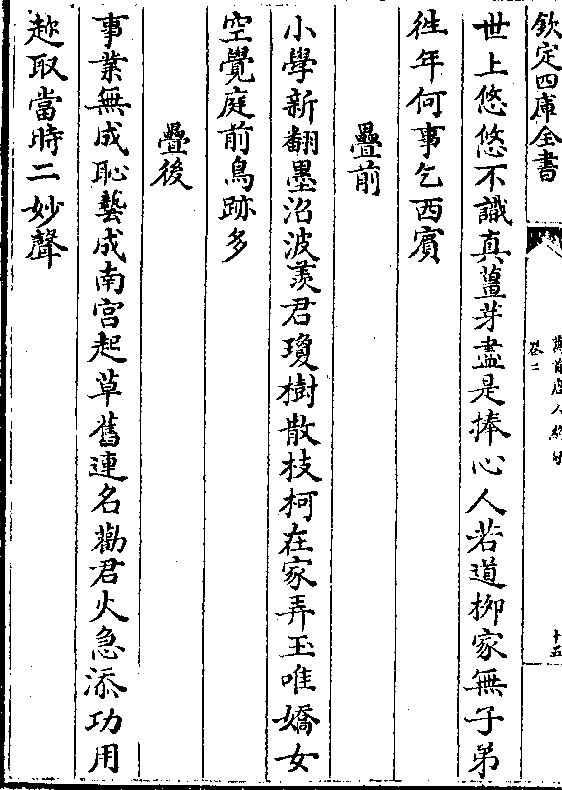 欽定四庫全書
萬首唐人絶句
卷二
十五
世上悠悠不識真薑芽盡是捧心人若道柳家無子弟
徃年何事乞西賓
疊前
小學新翻墨沼波羨君瓊樹散枝柯在家弄玉唯嬌女
空覺庭前鳥跡多
疊後
事業無成恥藝成南宫起草舊連名勸君火急添功用
趂取當時二妙聲